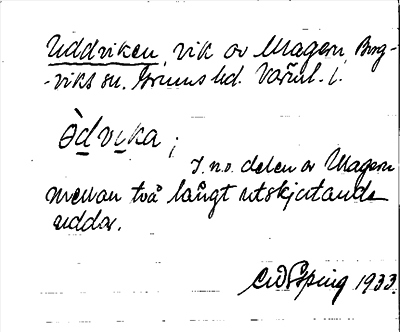 Uddviken, vik av Magern, Borg-
-viks sn. Grums hd. Värml. l.
òdvika;
I n.v. delen av Magern
mellan två långt utskjutande
uddar.
1933.